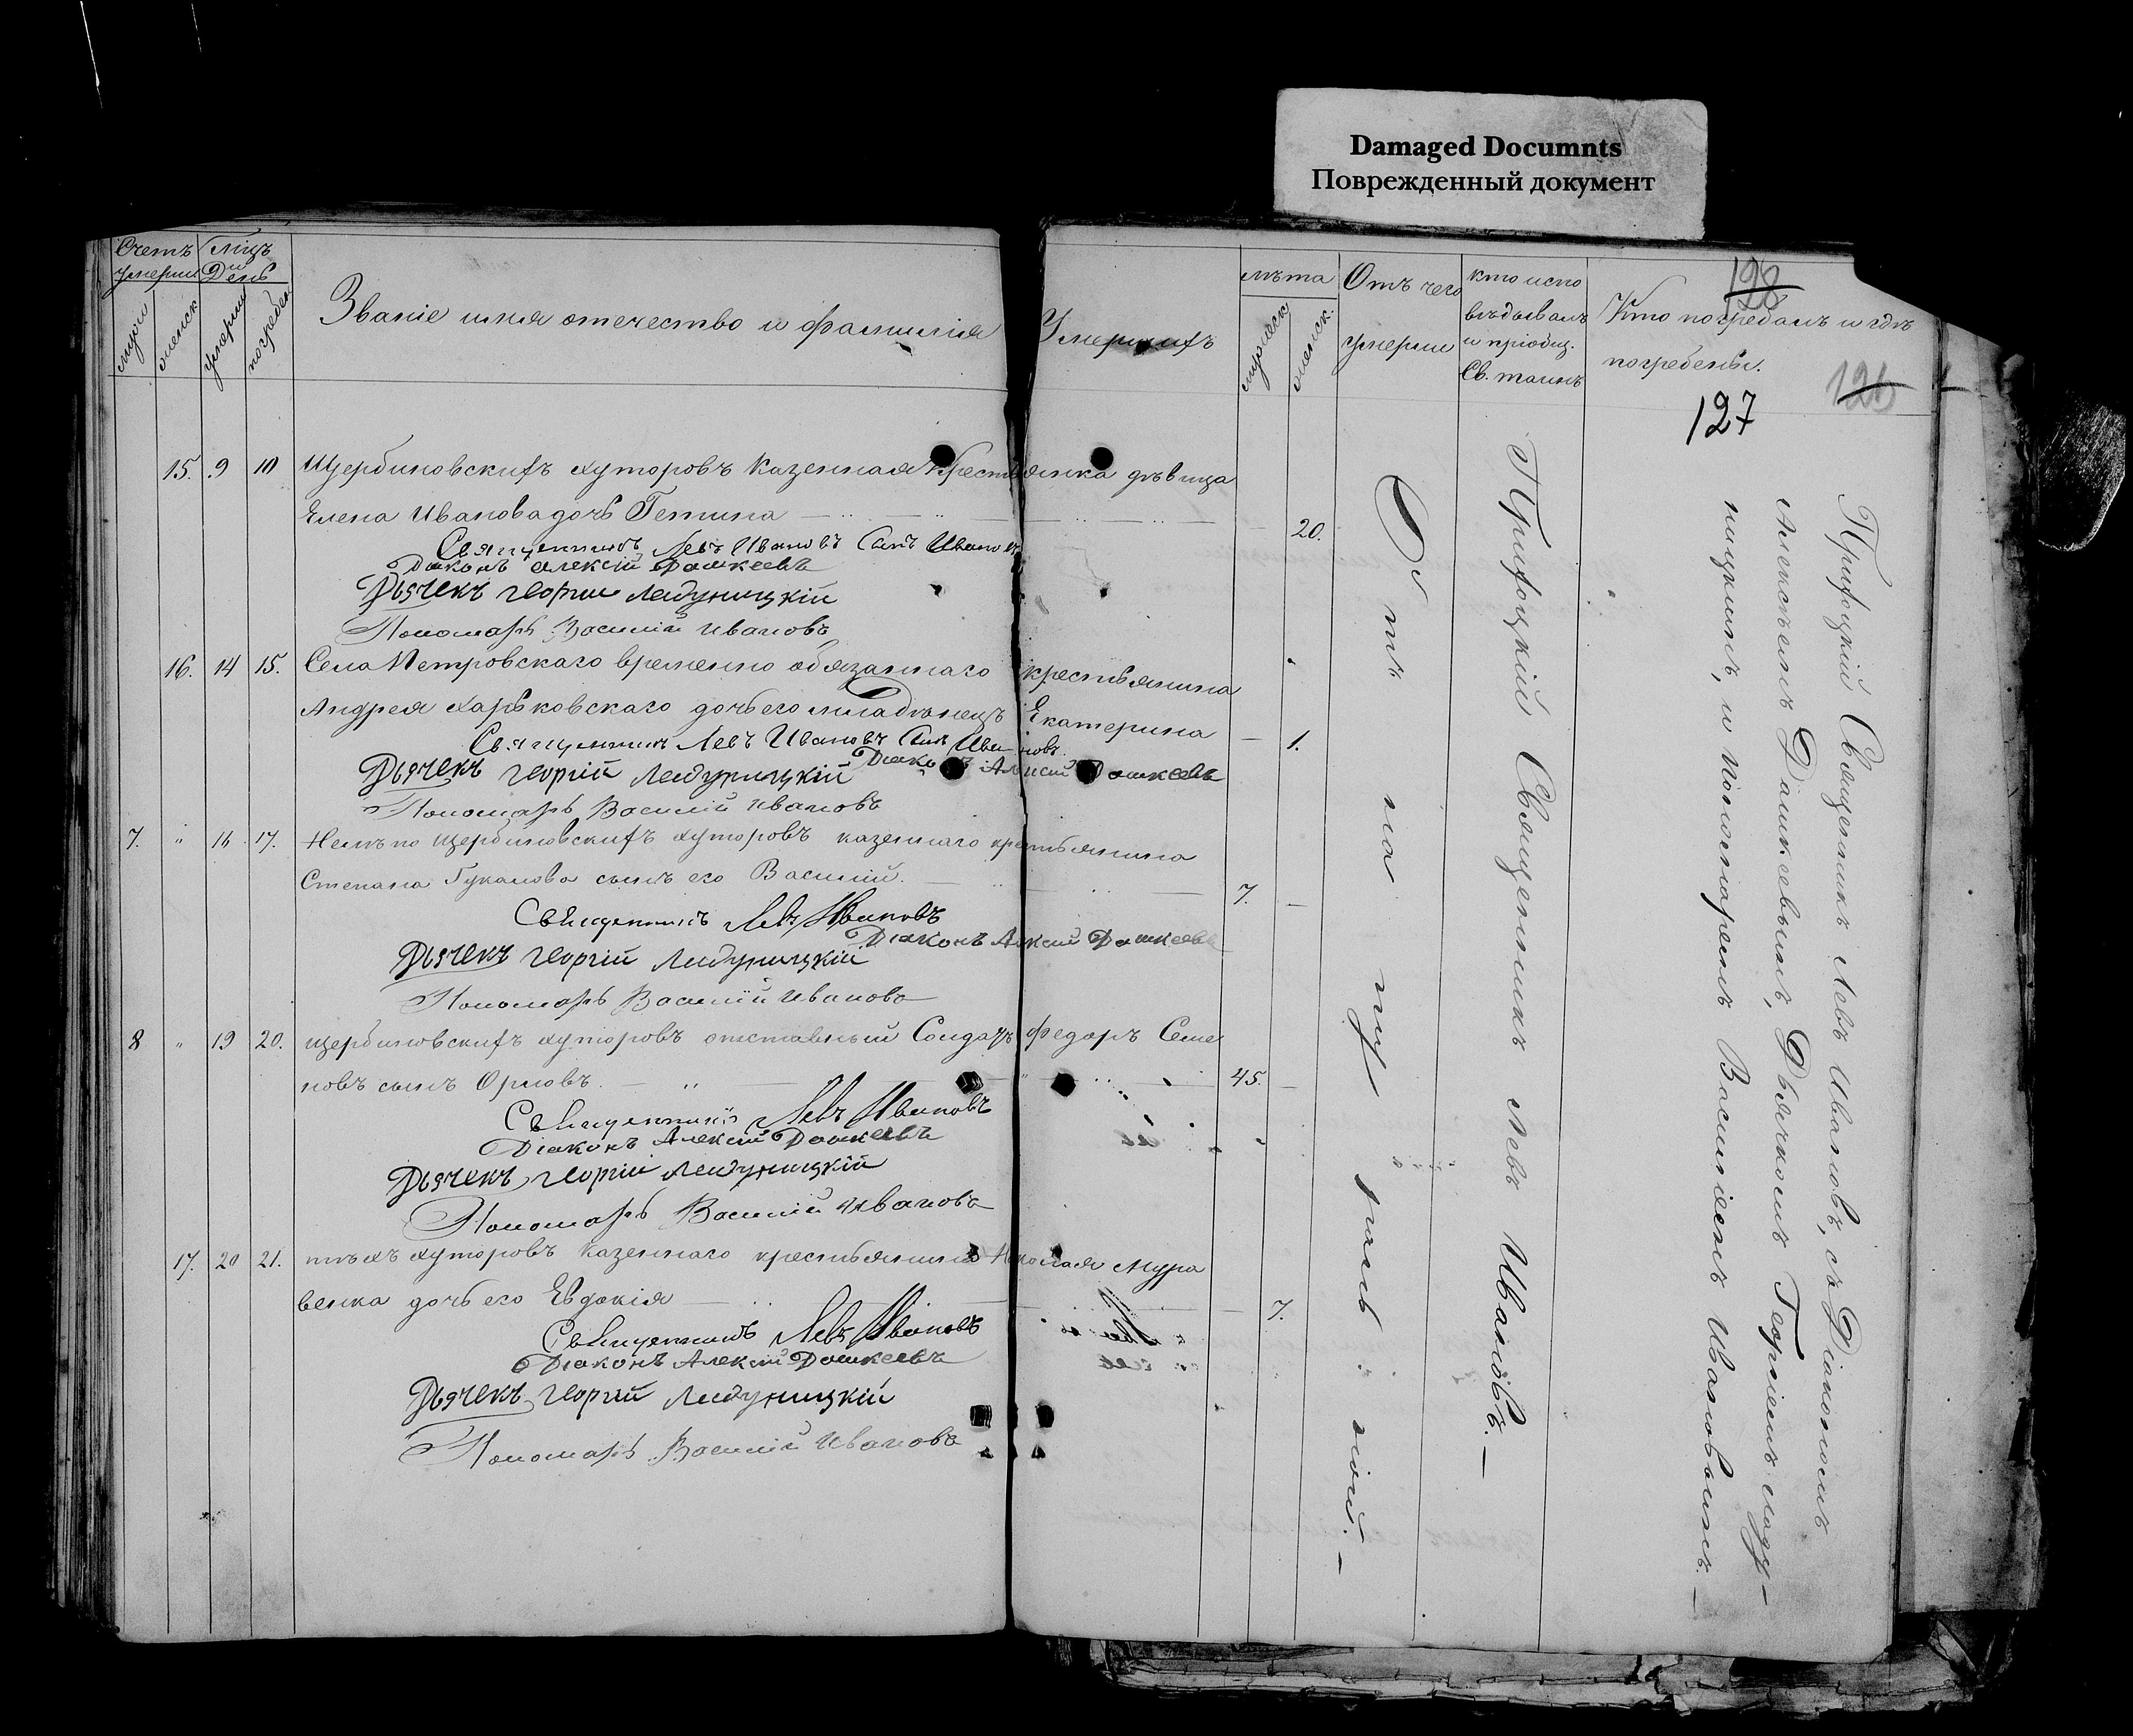 Damaged Documnts
Поврежденный документ
Счетъ
умерши
Мцъ
и
День
муж
женск
умерши
погребен
Званіе имя отечество и фамилія
Умершихъ
лѣта
мужеск
женск.
Отъ чего
умерши
кто испо
вѣдывалъ
и пріобщ.
Св. таинъ
Кто погребалъ и гдѣ
погребены.
128
126
127
15. 9 10 Щербиновскихъ хуторовъ казенная крестьянка дѣвица
Елена Иванова дочь Гетина 20.
Священникъ Левъ Ивановъ Сынъ Ивановъ
Діаконъ Алексій Дашкеевъ
Дьячекъ Георгій Ладуницкій
Пономарь Василій Ивановъ
16. 14 15. Села Петровскаго временно обязаннаго крестьянина
Андрея Харьковскаго дочь его младенецъ Екатерина — 1.
Священникъ Левъ Ивановъ Сынъ Ивановъ
Діаконъ Алексій Дашкеевъ
Дьячекъ Георгій Ладуницкій
Пономарь Василій Ивановъ
7. " 16 17. Щербиновскихъ хуторовъ казеннаго крестьянина
Степана Гуканова сынъ его Василій. 7. —
Священникъ Левъ Ивановъ
Діаконъ Алексій Дашкеевъ
Дьячекъ Георгій Ладуницкій
Пономарь Василій Ивановъ
8 " 19 20. щербиновскихъ хуторовъ отставный Солдатъ Федоръ Семе
новъ сынъ Орловъ. 45. —
Священникъ Левъ Ивановъ
Діаконъ Алексій Дашкеевъ
Дьячекъ Георгій Ладуницкій
Пономарь Василій Ивановъ
17. 20 21. тѣхъ хуторовъ казеннаго крестьянина Николая Мура
венка дочь его Евдокія — 7.
Священникъ Левъ Ивановъ
Діаконъ Алексій Дашкеевъ
Дьячекъ Георгій Ладуницкій
Пономарь Василій Ивановъ
Отъ натуральной. —
Приходскій Священникъ Левъ Ивановъ. —
Приходскій Священникъ Левъ Ивановъ, съ Діакономъ
Алексѣемъ Дашкевымъ, Дьячкомъ Георгіемъ Ладу—
ницкимъ, и пономаремъ Василіемъ Ивановымъ. —